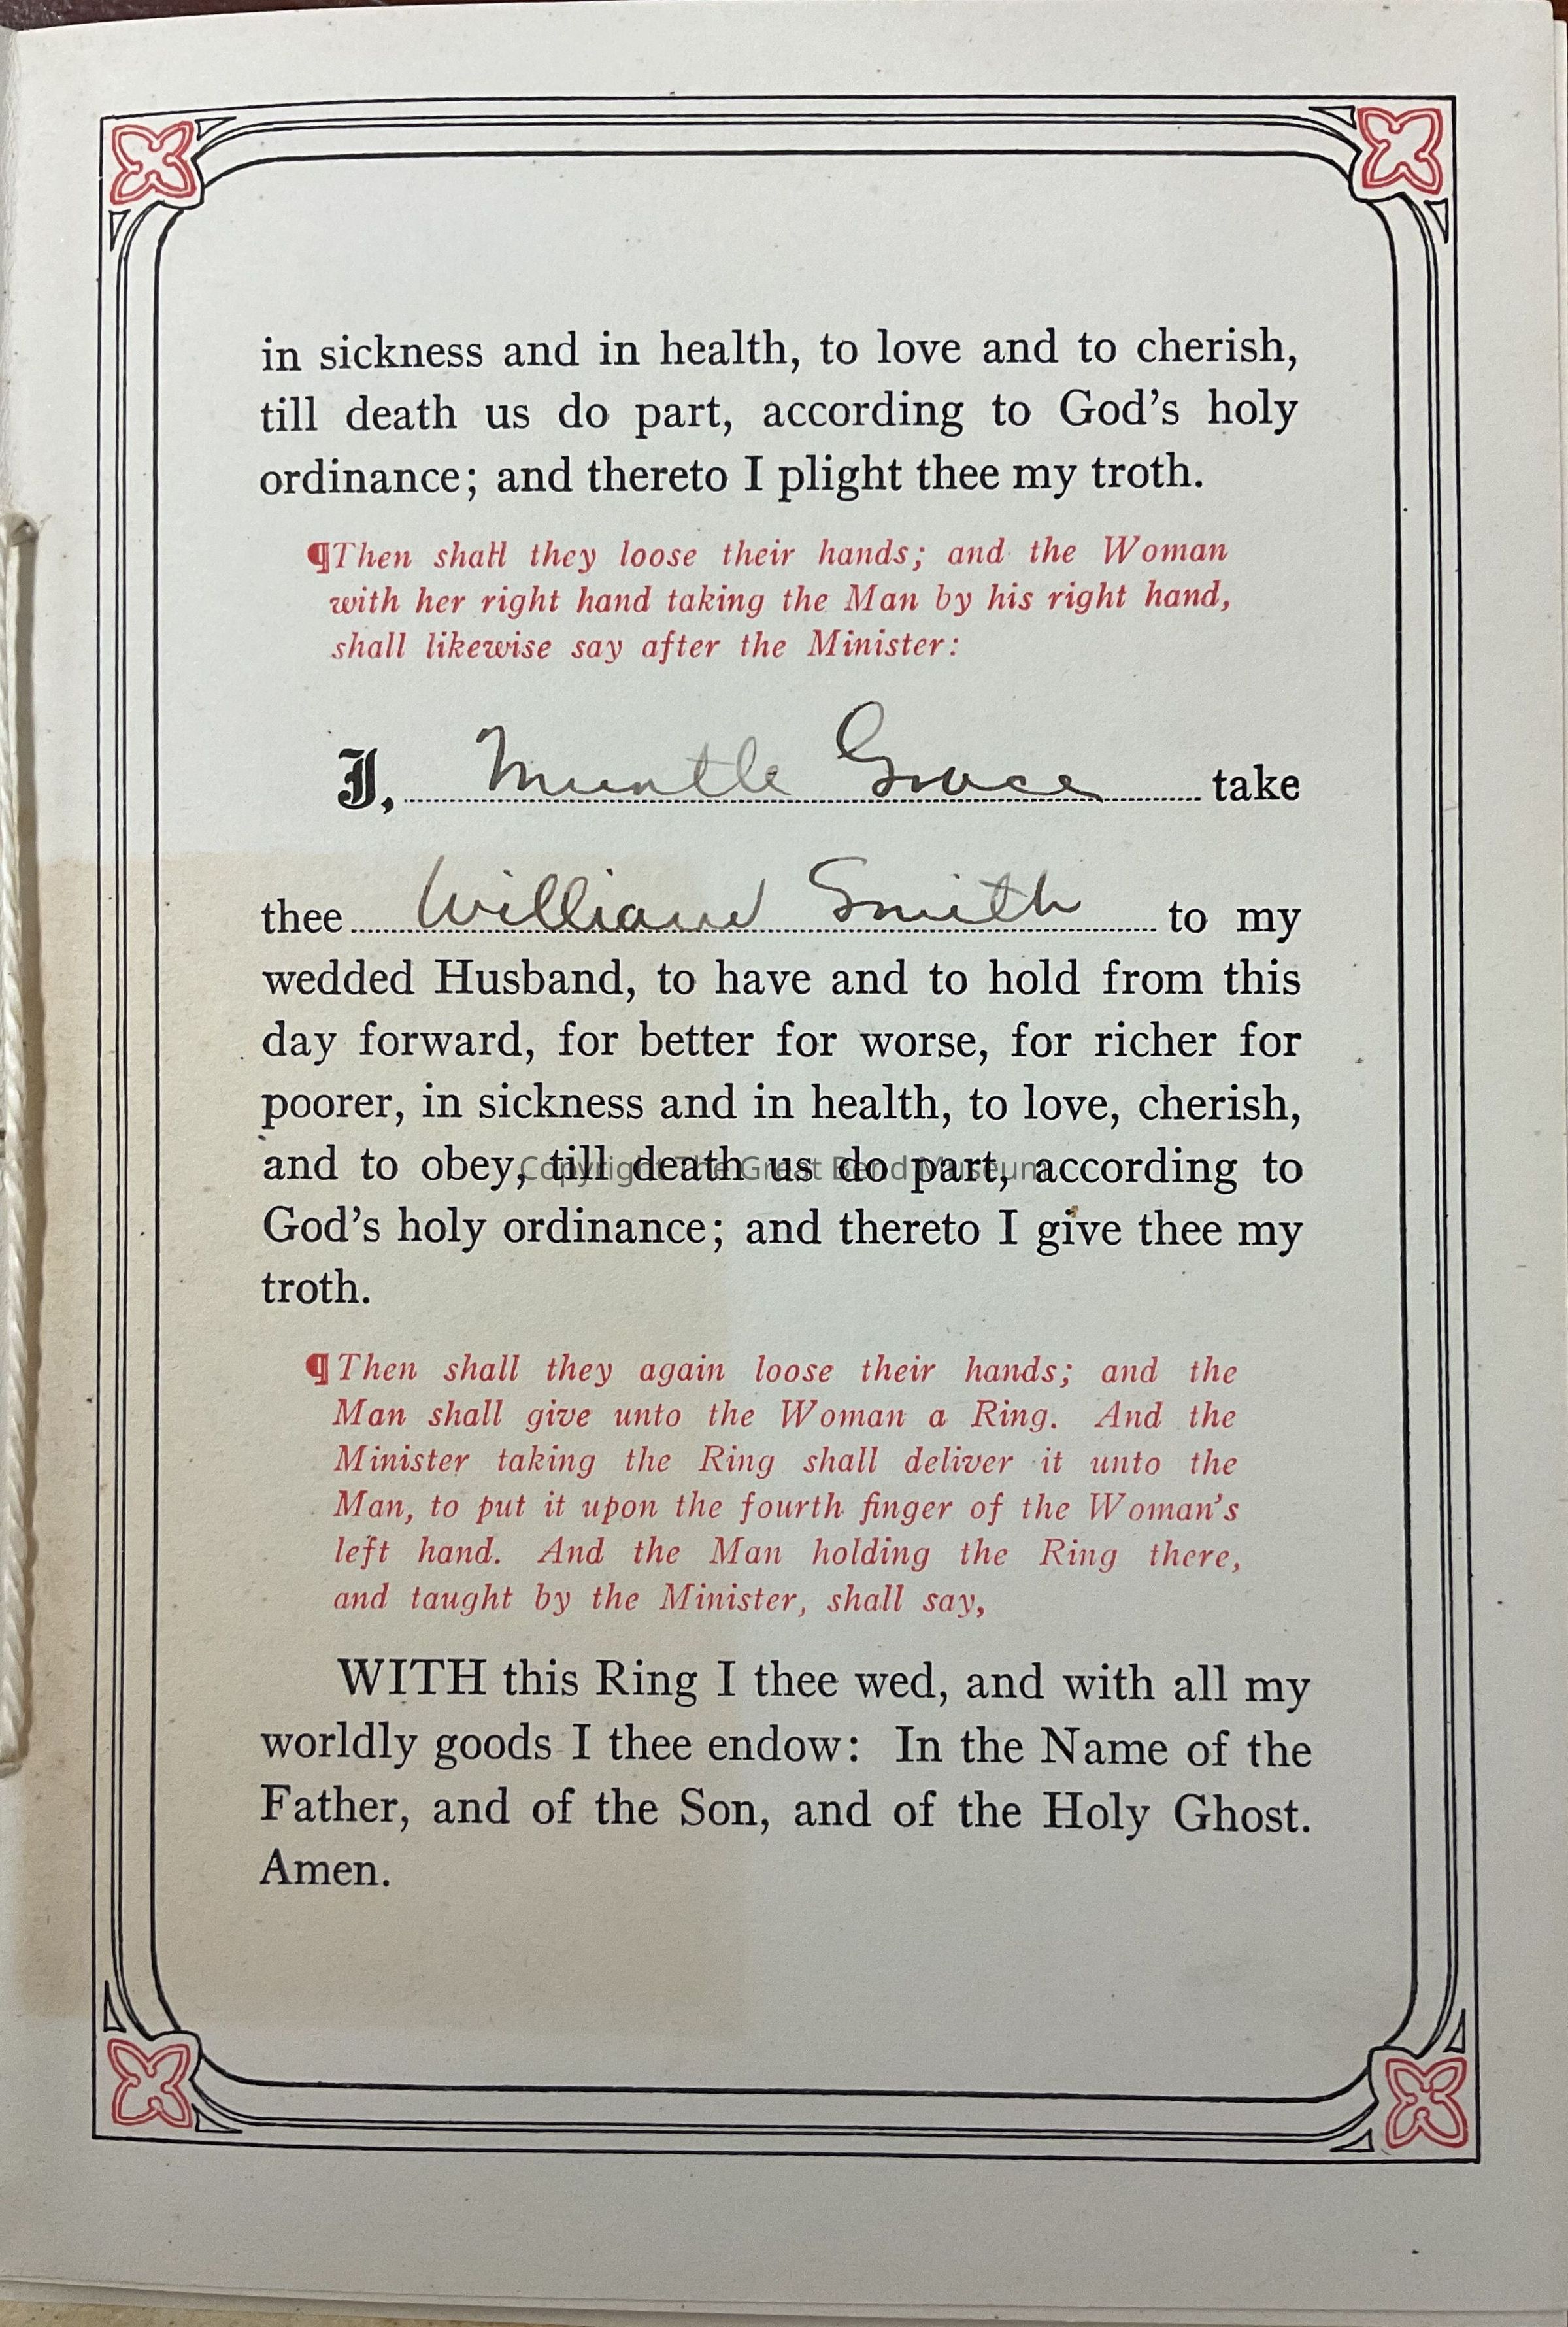 in sickness and in health, to love and to cherish,
till death us do part, according to God's holy
ordinance; and thereto I plight thee my troth.
¶Then shall they loose their hands; and the Woman
with her right hand taking the Man by his right hand,
shall likewise say after the Minister:
I, Grace take
thee William Smith to my
wedded Husband, to have and to hold from this
day forward, for better for worse, for richer for
poorer, in sickness and in health, to love, cherish,
and to obey, till death us do part, according to
Copyright The Great Bend Museum
God's holy ordinance; and thereto I give thee my
troth.
¶Then shall they again loose their hands; and the
Man shall give unto the Woman a Ring. And the
Minister taking the Ring shall deliver it unto the
Man, to put it upon the fourth finger of the Woman's
left hand. And the Man holding the Ring there,
and taught by the Minister, shall say,
WITH this Ring I thee wed, and with all my
worldly goods I thee endow: In the Name of the
Father, and of the Son, and of the Holy Ghost.
Amen.